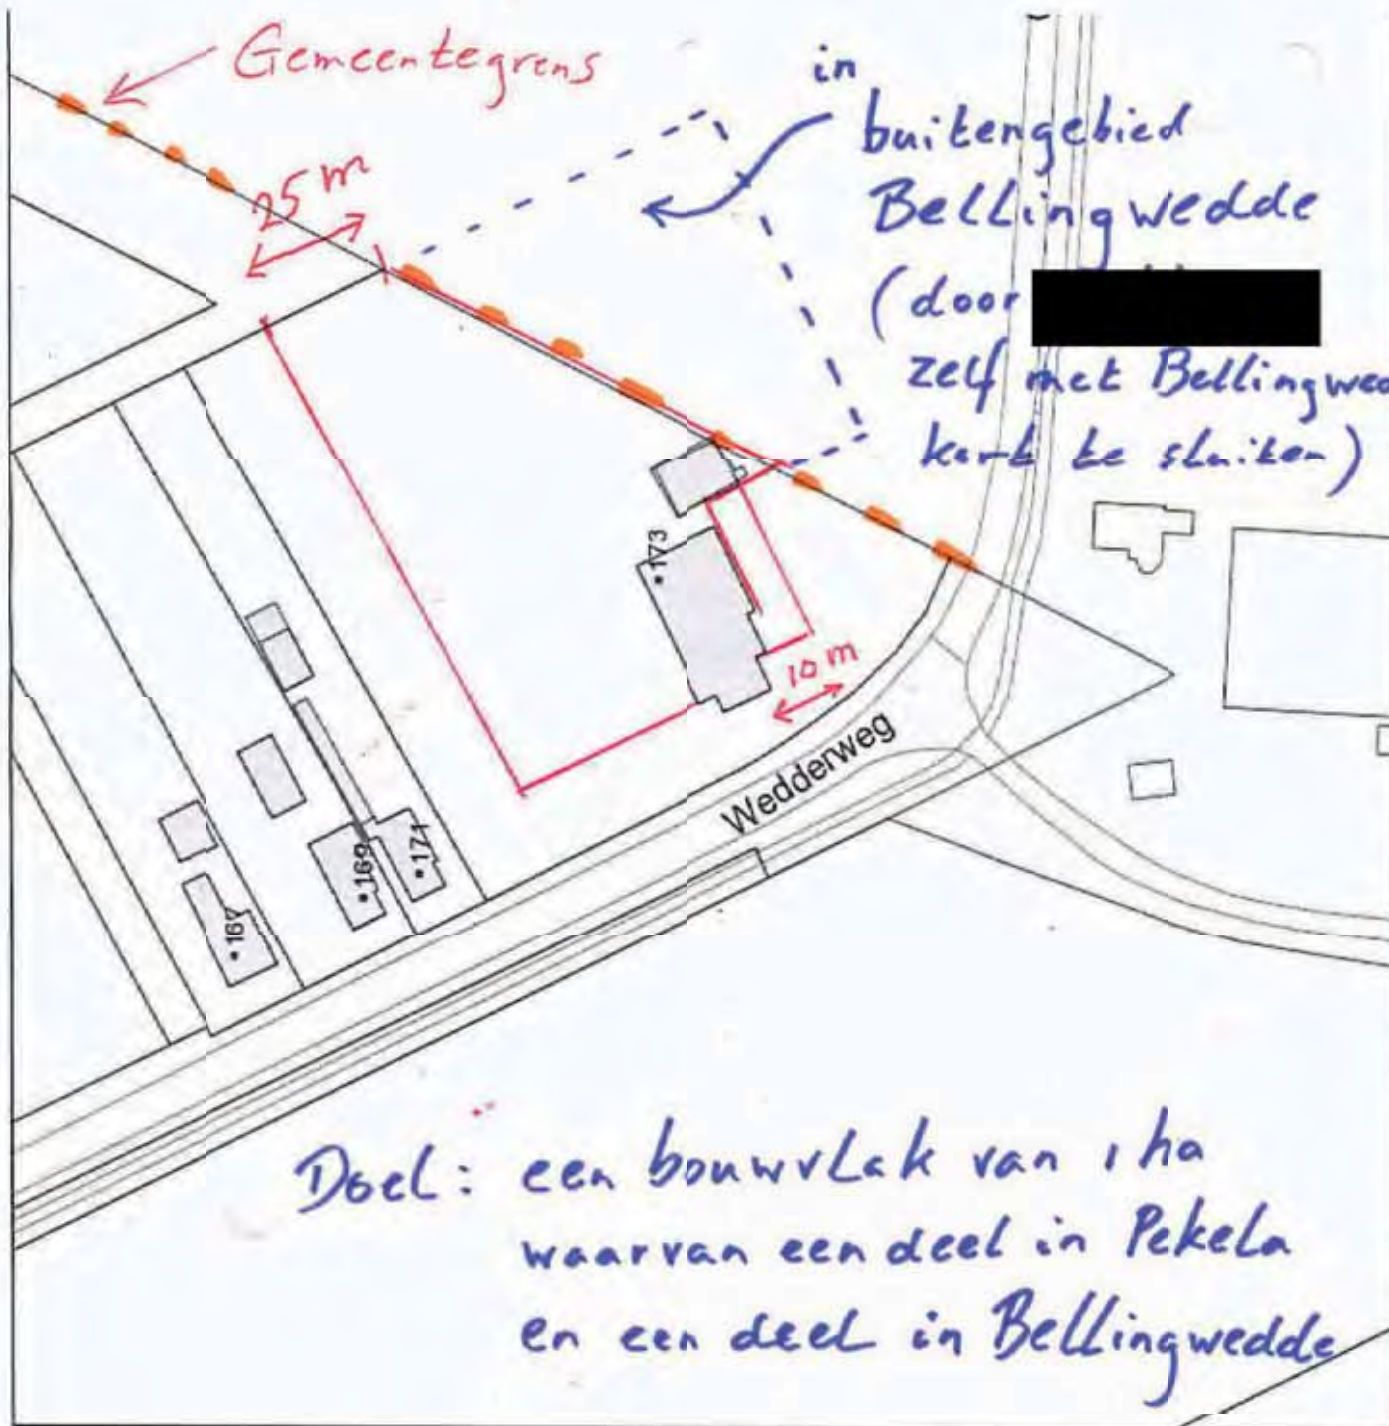 Gemeentegrens
25 m
in
buitengebied
Bellingwedde
(door
zelf met Bellingwed
kort te sluiten)
173
10 m
Wedderweg
171
169
167
Doel: een bouwvlak van 1 ha
waarvan een deel in Pekela
en een deel in Bellingwedde